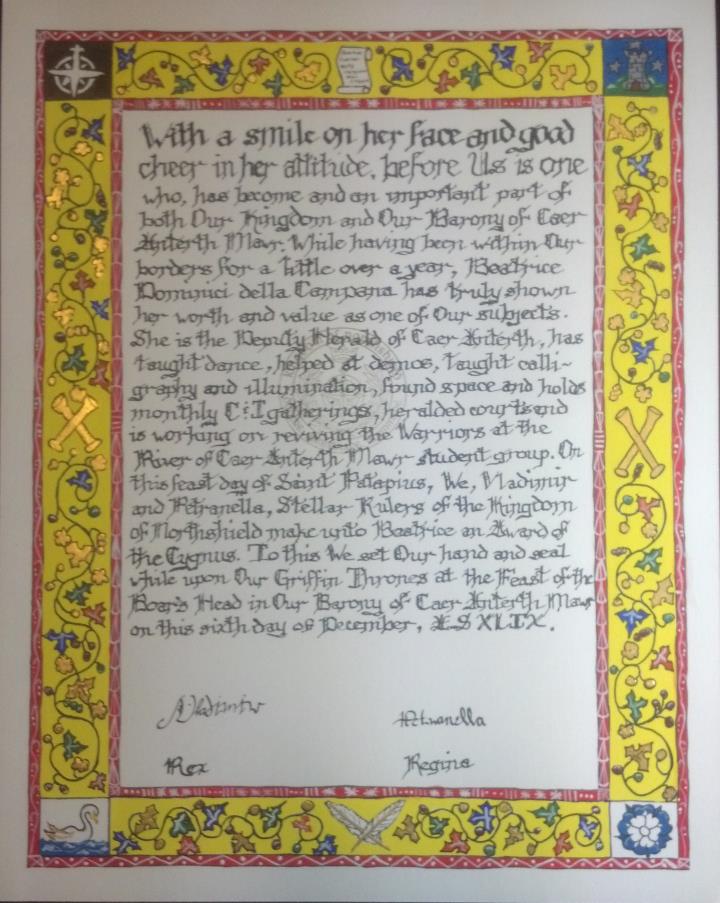 With a smile on her face and good
cheer in her attitude, before Us is one
who, has become and an important part of
both Our Kingdom and Our Barony of Caer
Anterth Mawr. While having been within Our
borders for a little over a year, Beatrice
Dominici della Campana has truly shown
her worth and value as one of Our subjects.
She is the Deputy Herald of Caer Anterth, has
taught dance, helped at demos, taught calli-
graphy and illumination, found space and holds
monthly C&I gatherings, heralded courts and
is working on reviving the Warriors at the
River of Caer Anterth Mawr student group. On
this feast day of Saint Patapius, We, Vladimir
and Petranella, Stellar Rulers of the Kingdom
of Northshield make unto Beatrice an Award of
the Cygnus. To this We set Our hand and seal
while upon Our Griffin Thrones at the Feast of the
Boar's Head in Our Barony of Caer Anterth Mawr
on this sixth day of December, AS XLIX.
Vladimir
Petranella
Rex
Regina